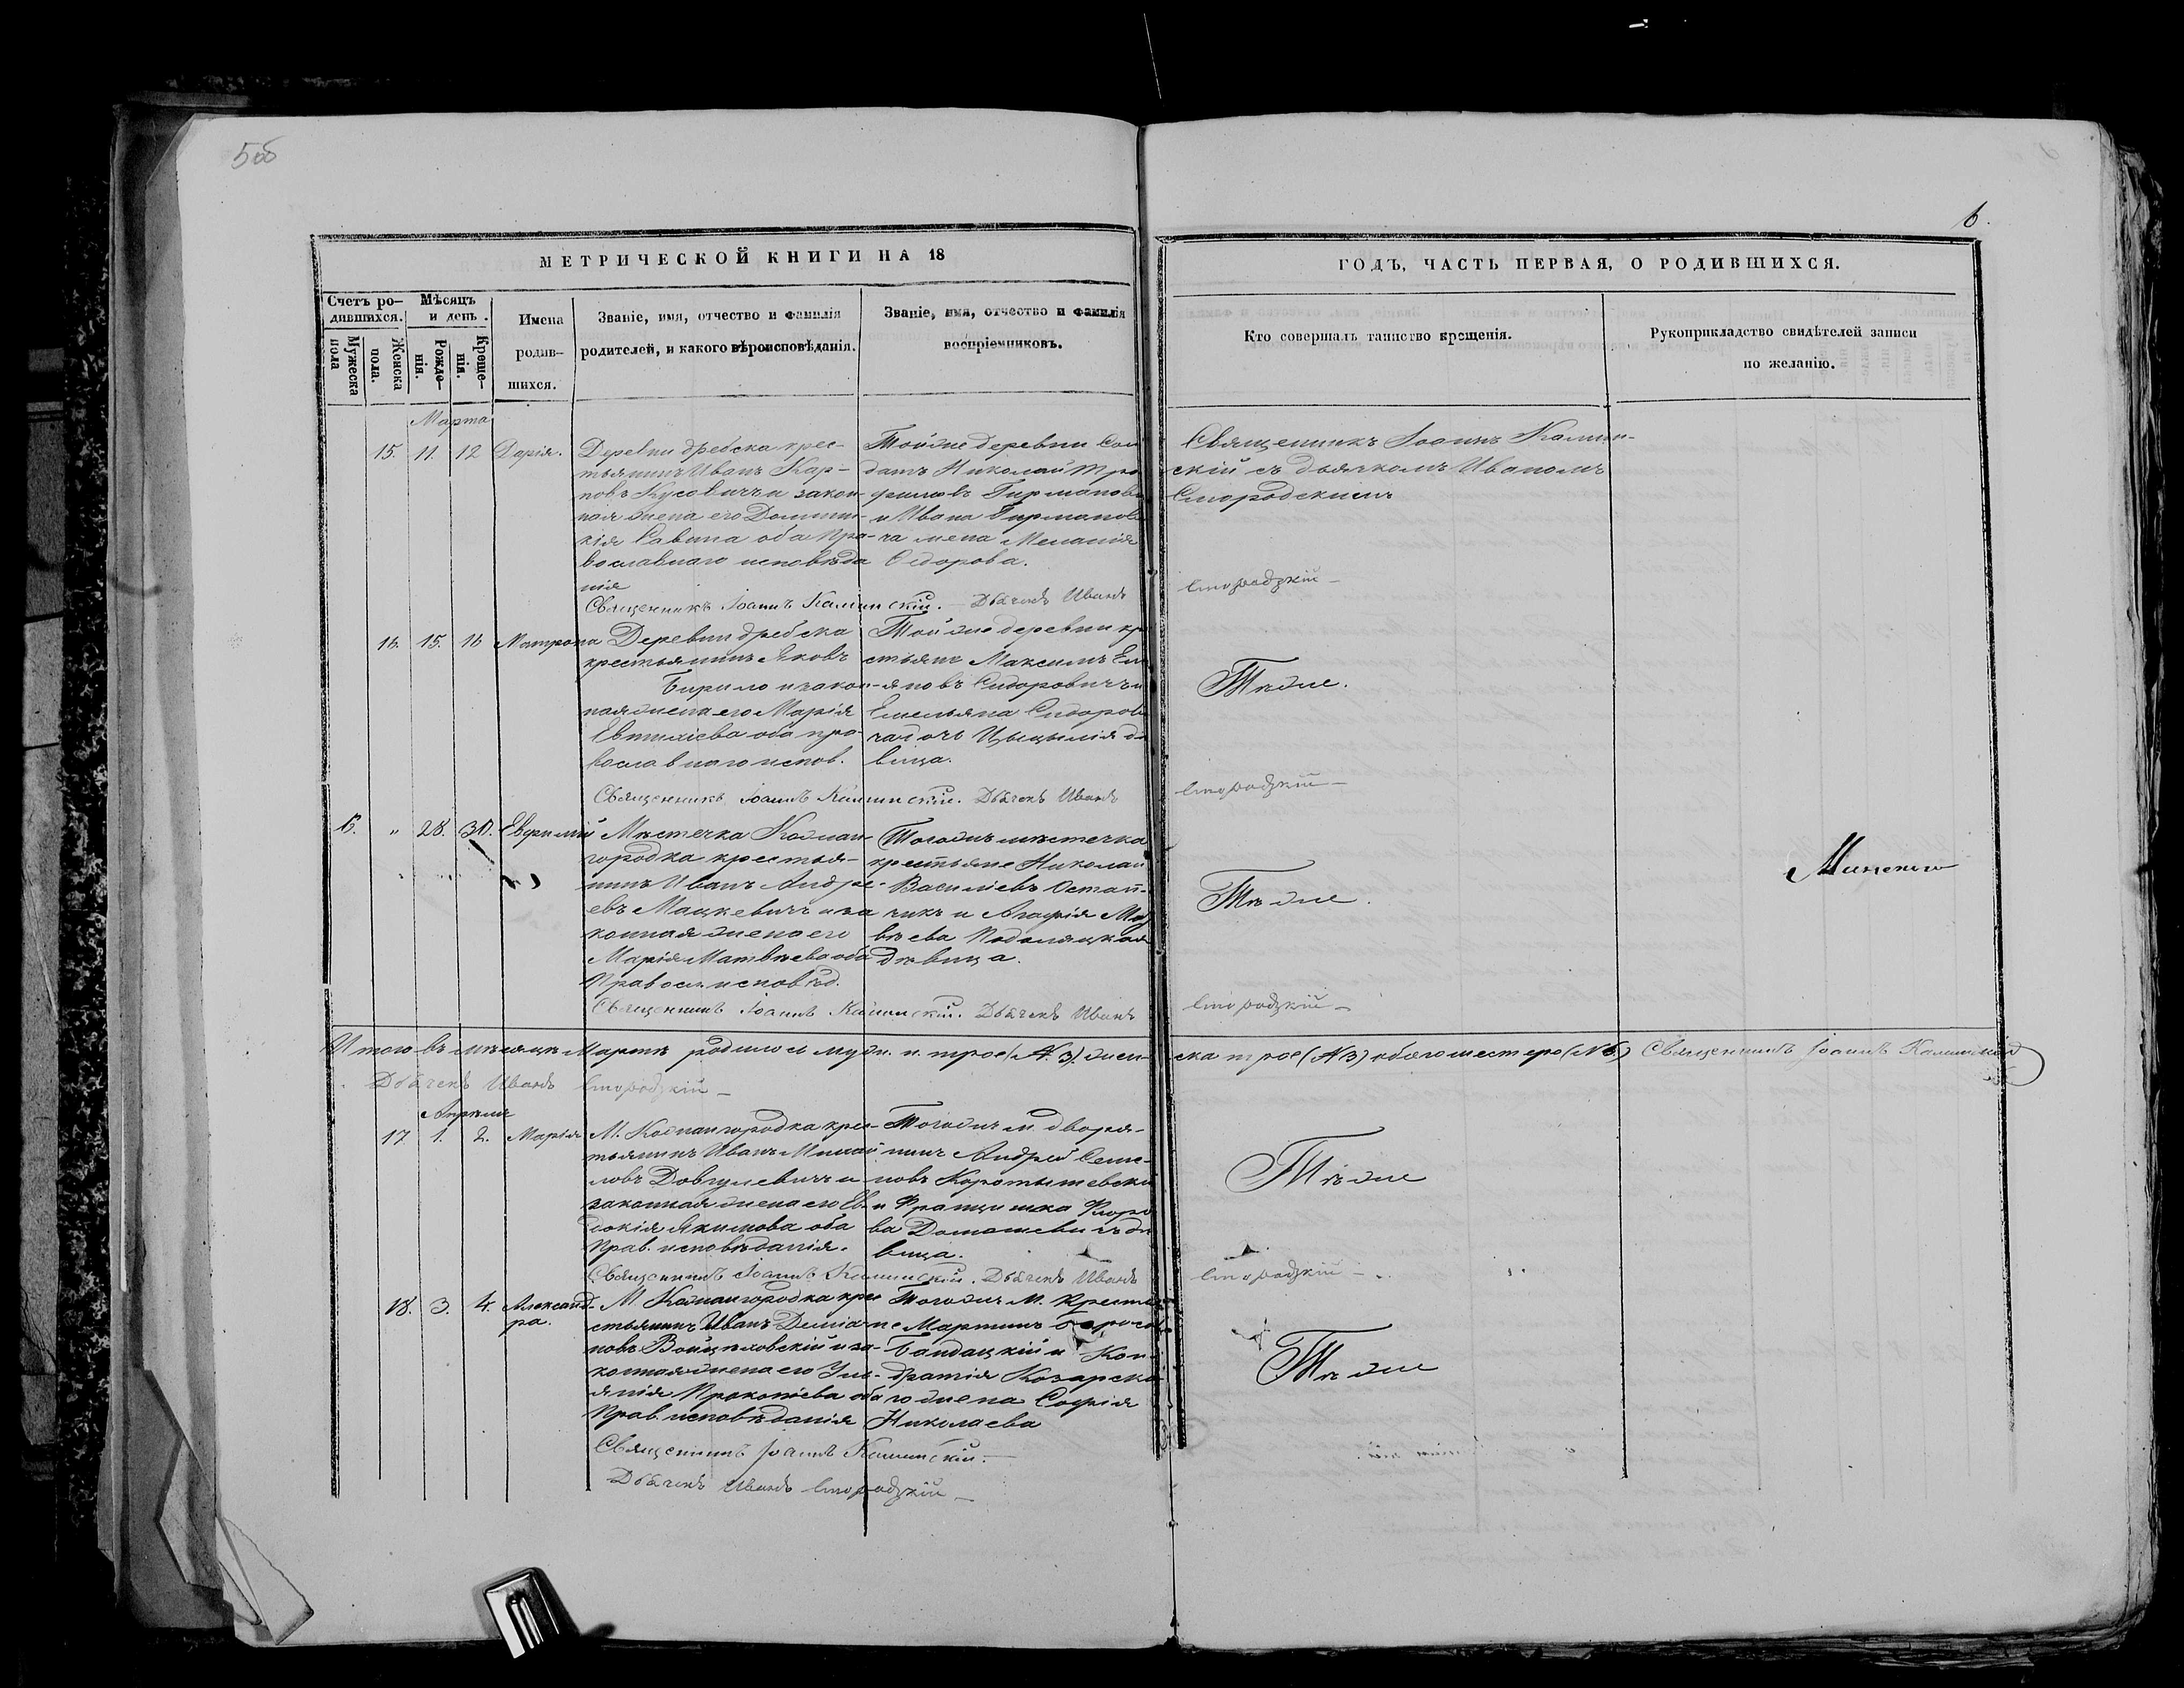 5об
6.
МЕТРИЧЕСКОЙ КНИГИ НА 18
ГОДЪ, ЧАСТЬ ПЕРВАЯ, О РОДИВШИХСЯ.
Счетъ ро-
дившихся.
Мужеска пола
Женска пола.
Мѣсяцъ
и день.
Рожде-
нія.
Креще-
нія.
Имена
родив-
шихся.
Званіе, имя, отчество и фамилія
родителей, и какого вѣроисповѣданія.
Званіе, имя, отчество и фамилія
воспріемниковъ.
Кто совершалъ таинство крещенія.
Рукоприкладство свидѣтелей записи
по желанію.
Марта
15. 11. 12 Дарія.
Деревни Дребска крес-
тьянинъ Иванъ Кар-
повъ Кусовичъ и закон-
ная жена его Домини-
кія Савина оба Пра-
вославнаго исповѣда
нія
Тойже деревни Сол
датъ Николай Тро
фимовъ Гирманови
и Ивана Гирманов
ча жена Меланія
Сидорова.
Священникъ Іоаннъ Калин-
скій съ дьячкомъ Иваномъ
Стородскимъ
Священникъ Іоаннъ Калинскій. Дьячекъ Иванъ Стородзкій
16. 15. 16 Матрона
Деревни Дребска
крестьянинъ Яковъ
Бирило и закон-
ная жена его Марія
Евтихіева оба пра-
вославнаго испов.
Тойже деревни кр
стьяне Максимъ Ем
яновъ Сидоровичъ и
Емельяна Сидоров
ча дочь Цыцылія дѣ
вица.
Тѣже.
Священникъ Іоаннъ Калинскій. Дьячекъ Иванъ Стородзкій
6. " 28. 30. Евфимій
Мѣстечка Кожан-
городка крестья-
нинъ Иванъ Андре-
евъ Мацкевичъ и за
конная жена его
Марія Матвѣева оба
Правосл. исповѣд.
Тогожъ мѣстечка
крестьяне Николай
Василіевъ Остап-
чикъ и Агафія Мат
вѣева Подоляцкая
дѣвица.
Тѣже.
Минскаго
Священникъ Іоаннъ Калинскій. Дьячекъ Иванъ Стородзкій
Итого въ мѣсяцѣ Мартѣ родилось муж. п. трое (№ 3) жен-
ска трое (№ 3) обоего шестеро (№ 6.) Священникъ Іоаннъ Калинскій
Дьячекъ Иванъ Стородзкій
Апрѣль
17. 1. 2. Марія
М. Кожангородка крес-
тьянинъ Иванъ Михай
ловъ Довгулевичъ и
законная жена его Ев-
докія Якимова оба
Прав. исповѣданія.
Тогожъ м. дворя-
нинъ Андрей Семе-
новъ Коротышевскі
и Францишка Флоро
ва Домашевичъ дѣ
вица.
Тѣже
Священникъ Іоаннъ Калинскій. Дьячекъ Иванъ Стородзкій
18. 3. 4. Александ-
ра.
М. Кожангородка кре
стьянинъ Иванъ Деміа-
новъ Войцѣховскій и за-
конная жена его Уль-
янія Прокопіева оба
Прав. исповѣданія
Тогожъ М. Крестья
не Мартинъ
Бандацкій и Кон
дратія Козарско
го жена Софія
Николаева
Тѣже
Священникъ Іоаннъ Калинскій.
Дьячекъ Иванъ Стородзкій